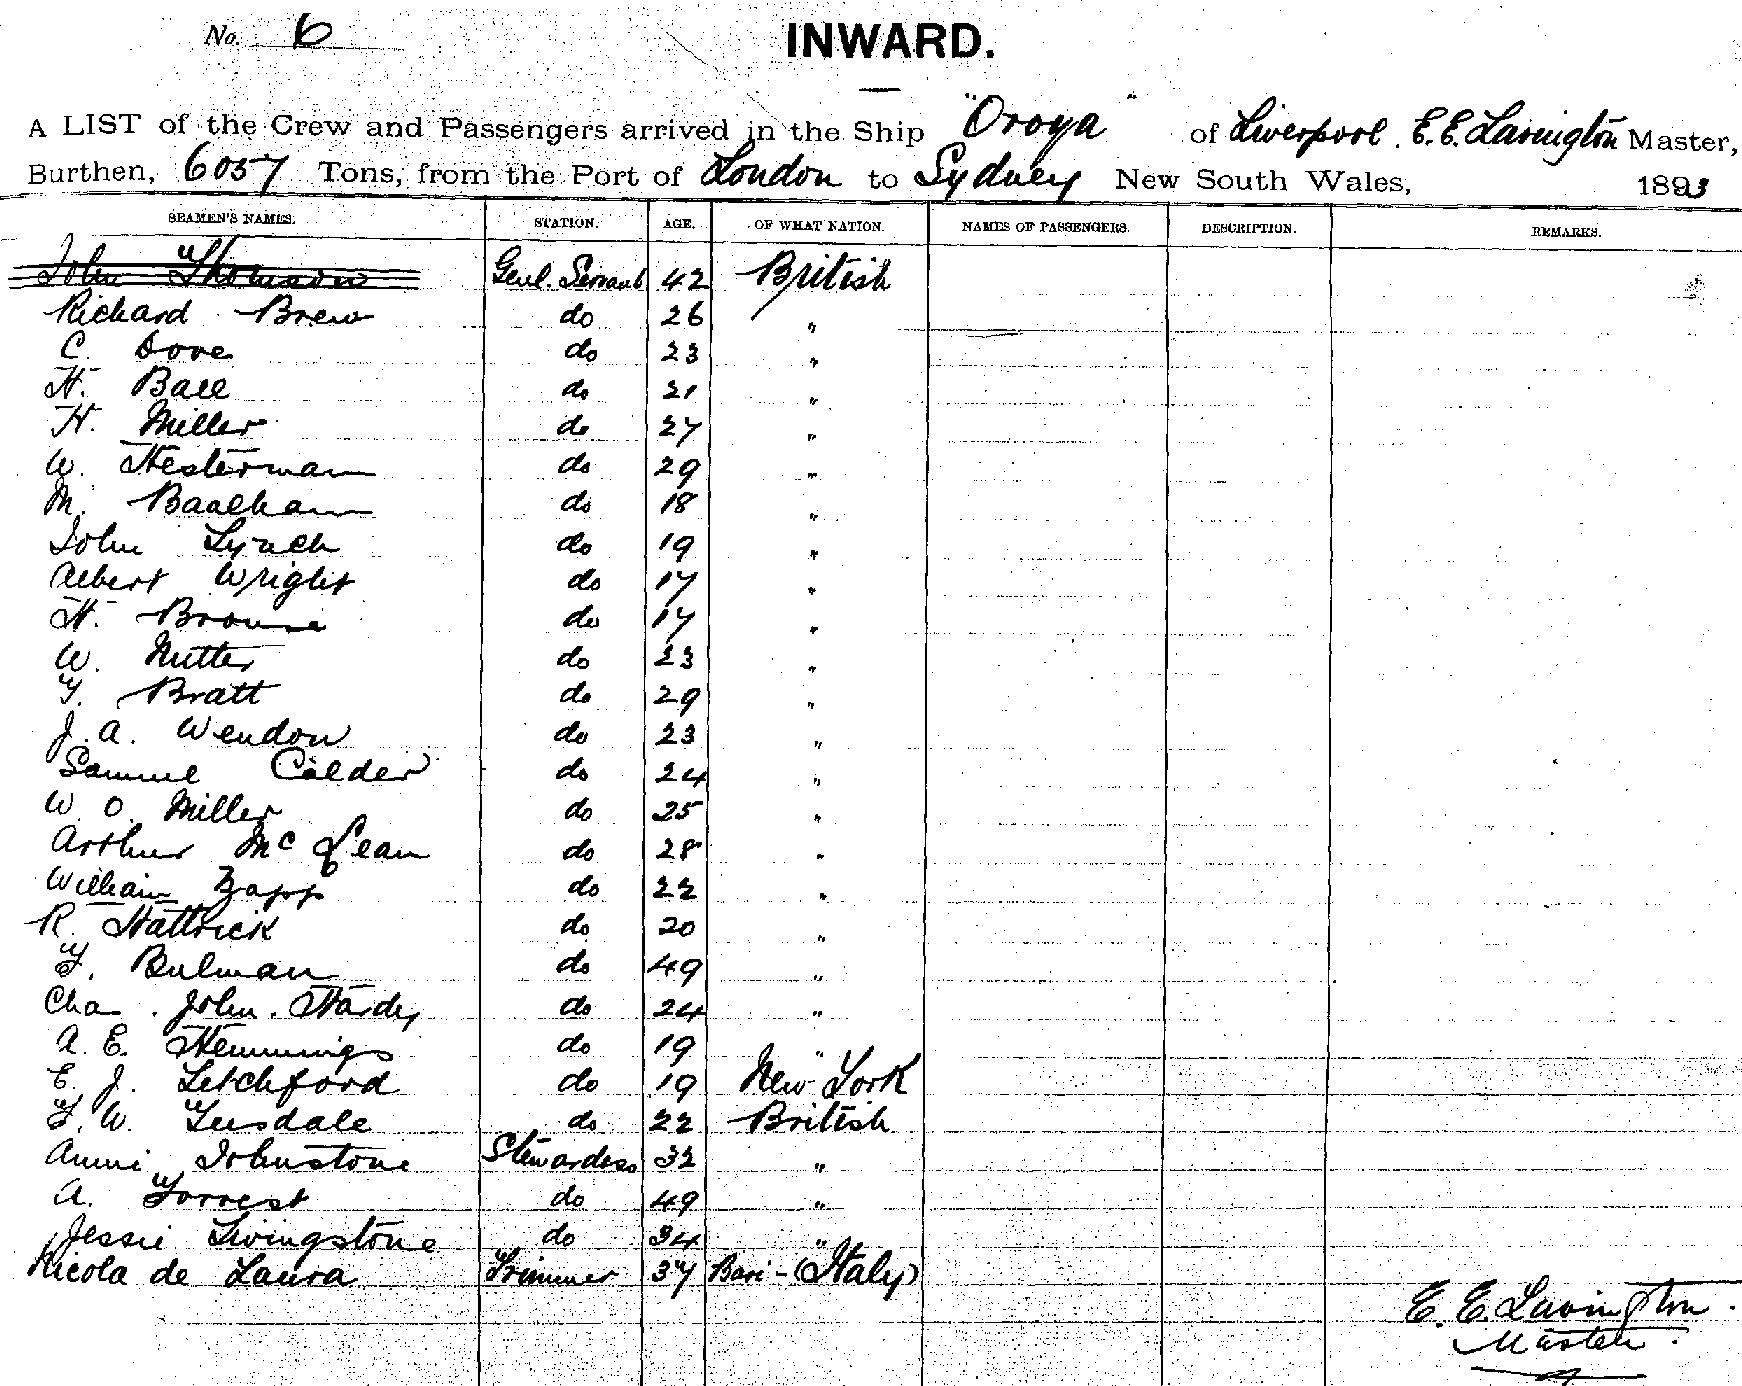 No. 6
INWARD.
A LIST of the Crew and Passengers arrived in the Ship "Oroya" of Liverpool. E. E. Lavington Master,
Burthen, 6057 Tons, from the Port of London to Sydney New South Wales, 1893
SEAMEN'S NAMES. STATION. AGE. OF WHAT NATION. NAMES OF PASSENGERS. DESCRIPTION. REMARKS.
John Thomson Genl. Servant 42 British
Richard Brew do 26 "
C. Dove do 23 "
H. Ball do 21 "
H. Miller do 27 "
W. Hesterman do 29 "
M. Baalham do 18 "
John Lynch do 19 "
Albert Wright do 17 "
H. Browne do 17 "
W. Nutter do 23 "
F. Bratt do 29 "
J. A. Wendon do 23 "
Samuel Calder do 24 "
W. O. Miller do 25 "
Arthur Mc Lean do 28 "
William Zapp do 22 "
R. Hattrick do 20 "
F. Bulman do 49 "
Cha. John. Hardy do 24 "
A. E. Hemmings do 19 "
E. J. Letchford do 19 New York
F. W. do 22 British
Annie Johnstone Stewardess 32 "
A. Forrest do 49 "
Jessie Livingstone do 34 "
Nicola de Laura Trimmer 37 Bari - (Italy)
E. E. Lavington.
Master.